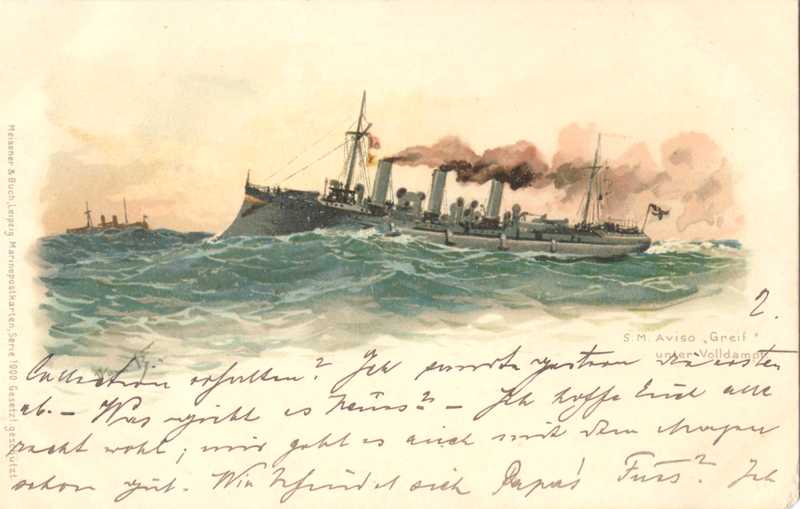 2.
S.M. Aviso „Greif“
unter Volldampf.
Collection erhalten? Ich sandte gestern die ersten
ab. – Was giebt es Neues? – Ich hoffe Euch alle
recht wohl; mir geht es auch mit dem Magen
schon gut. Wie befindet sich Papa's Fuss? Ich
Meissner & Buch, Leipzig. Marinepostkarten, Serie 1000 Gesetzl. geschützt.